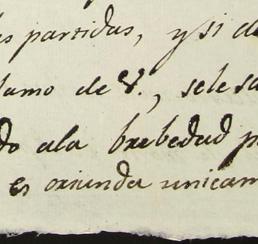 s partidas, y si d
lamo de V., sele sa
do ala brebedad p
es oriunda unicam